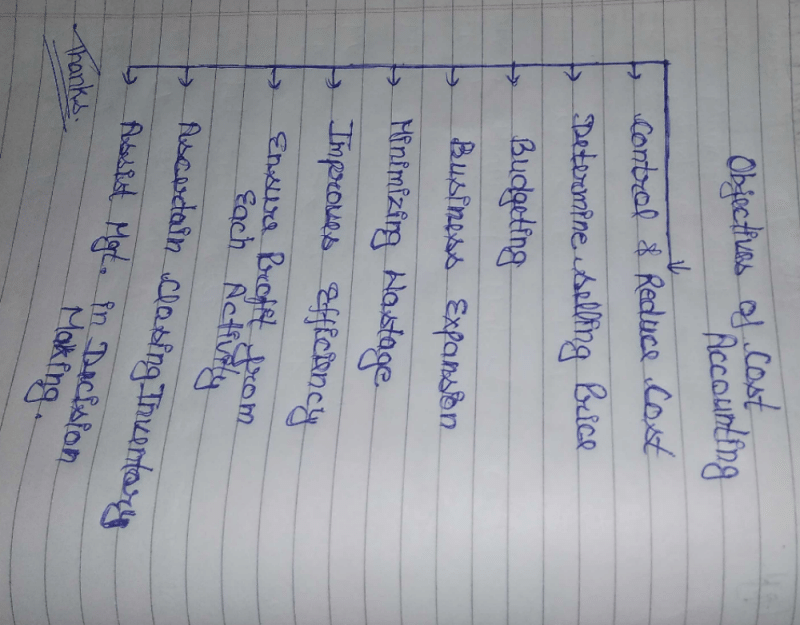 Objectives of Cost
Accounting
Control & Reduce Cost
Determine Selling Price
Budgeting
Business Expansion
Minimizing Wastage
Improves efficiency
Ensure Profit from
Each Activity
Ascertain Closing Inventory
Assist Mgt. in Decision
Making.
Thanks.